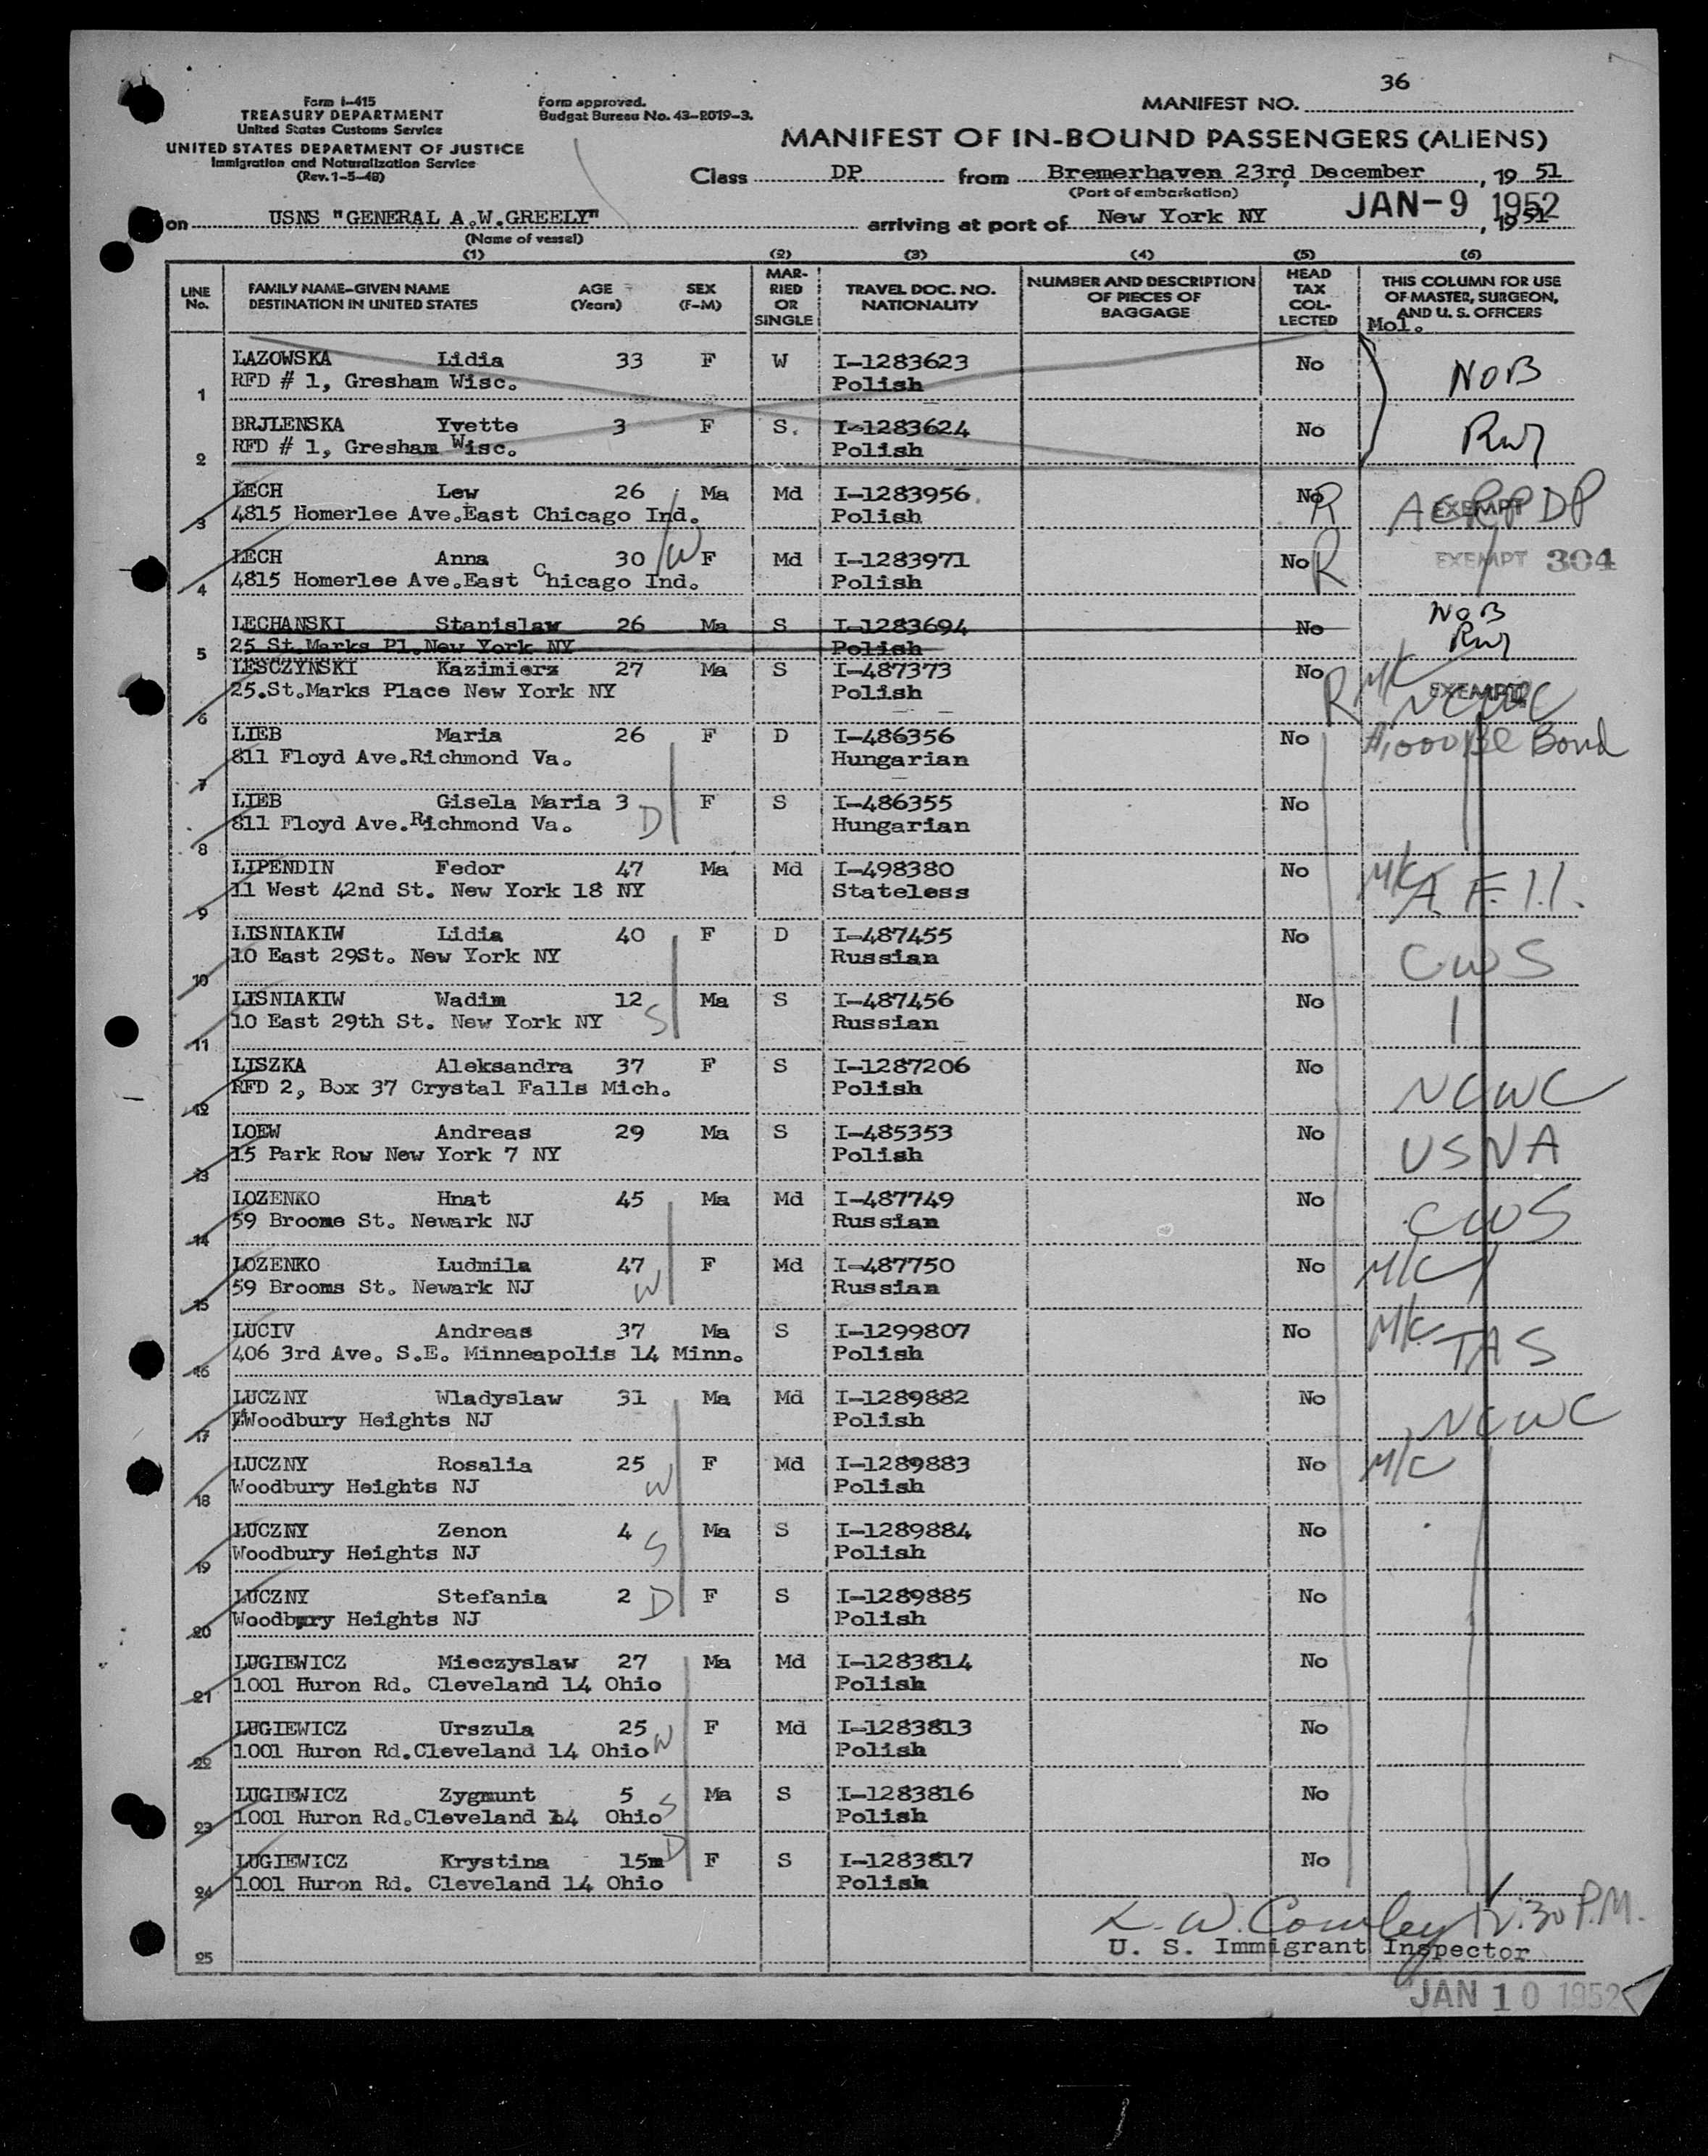 36
Form I-415
TREASURY DEPARTMENT
United States Customs Service
UNITED STATES DEPARTMENT OF JUSTICE
Immigration and Naturalization Service
(Rev. 1-5-48)
Form approved.
Budget Bureau No. 43-R019-3.
MANIFEST NO.
MANIFEST OF IN-BOUND PASSENGERS (ALIENS)
Class DP from Bremerhaven 23rd, December, 19 51
(Port of embarkation)
on USNS "GENERAL A.W.GREELY" arriving at port of New York NY JAN-9 1952, 1951
(Name of vessel)
(1) (2) (3) (4) (5) (6)
LINE No. FAMILY NAME-GIVEN NAME DESTINATION IN UNITED STATES AGE (Years) SEX (F-M) MARRIED OR SINGLE TRAVEL DOC. NO. NATIONALITY NUMBER AND DESCRIPTION OF PIECES OF BAGGAGE HEAD TAX COLLECTED THIS COLUMN FOR USE OF MASTER, SURGEON, AND U. S. OFFICERS
Mol.
LAZOWSKA Lidia 33 F W I-1283623 No NOB
1 RFD # 1, Gresham Wisc. Polish
BRJLENSKA Yvette 3 F S. I-1283624 No
2 RFD # 1, Gresham Wisc. Polish
LECH Lew 26 Ma Md I-1283956. No R EXEMPT DP
3 4815 Homerlee Ave.East Chicago Ind. Polish
LECH Anna 30 W F Md I-1283971 No R EXEMPT 304
4 4815 Homerlee Ave.East Chicago Ind. Polish
LECHANSKI Stanislaw 26 Ma S I-1283694 No NOB
5 25 St.Marks Pl.New York NY Polish
LESCZYNSKI Kazimierz 27 Ma S I-487373 No R M/C EXEMPT NCWC
6 25.St.Marks Place New York NY Polish
LIEB Maria 26 F D I-486356 No $1000 Bond
7 811 Floyd Ave.Richmond Va. Hungarian
LIEB Gisela Maria 3 D F S I-486355 No
8 811 Floyd Ave.Richmond Va. Hungarian
LIPENDIN Fedor 47 Ma Md I-498380 No M/C
9 11 West 42nd St. New York 18 NY Stateless
LISNIAKIW Lidia 40 F D I-487455 No CWS
10 10 East 29St. New York NY Russian
LISNIAKIW Wadim 12 S Ma S I-487456 No
11 10 East 29th St. New York NY Russian
LISZKA Aleksandra 37 F S I-1287206 No NCWC
12 RFD 2, Box 37 Crystal Falls Mich. Polish
LOEW Andreas 29 Ma S I-485353 No USNA
13 15 Park Row New York 7 NY Polish
LOZENKO Hnat 45 Ma Md I-487749 No CWS
14 59 Broome St. Newark NJ Russian
LOZENKO Ludmila 47 W F Md I-487750 No M/C
15 59 Brooms St. Newark NJ Russian
LUCIV Andreas 37 Ma S I-1299807 No M/C TAS
16 406 3rd Ave. S.E. Minneapolis 14 Minn. Polish
LUCZNY Wladyslaw 31 Ma Md I-1289882 No NCWC
17 Woodbury Heights NJ Polish
LUCZNY Rosalia 25 W F Md I-1289883 No M/C
18 Woodbury Heights NJ Polish
LUCZNY Zenon 4 S Ma S I-1289884 No
19 Woodbury Heights NJ Polish
LUCZNY Stefania 2 D F S I-1289885 No
20 Woodbury Heights NJ Polish
LUGIEWICZ Mieczyslaw 27 Ma Md I-1283814 No
21 1001 Huron Rd. Cleveland 14 Ohio Polish
LUGIEWICZ Urszula 25 W F Md I-1283813 No
22 1001 Huron Rd.Cleveland 14 Ohio Polish
LUGIEWICZ Zygmunt 5 S Ma S I-1283816 No
23 1001 Huron Rd.Cleveland 14 Ohio Polish
LUGIEWICZ Krystina 15m D F S I-1283817 No
24 1001 Huron Rd. Cleveland 14 Ohio Polish
12:30 P.M.
25 U. S. Immigrant Inspector
JAN 10 1952